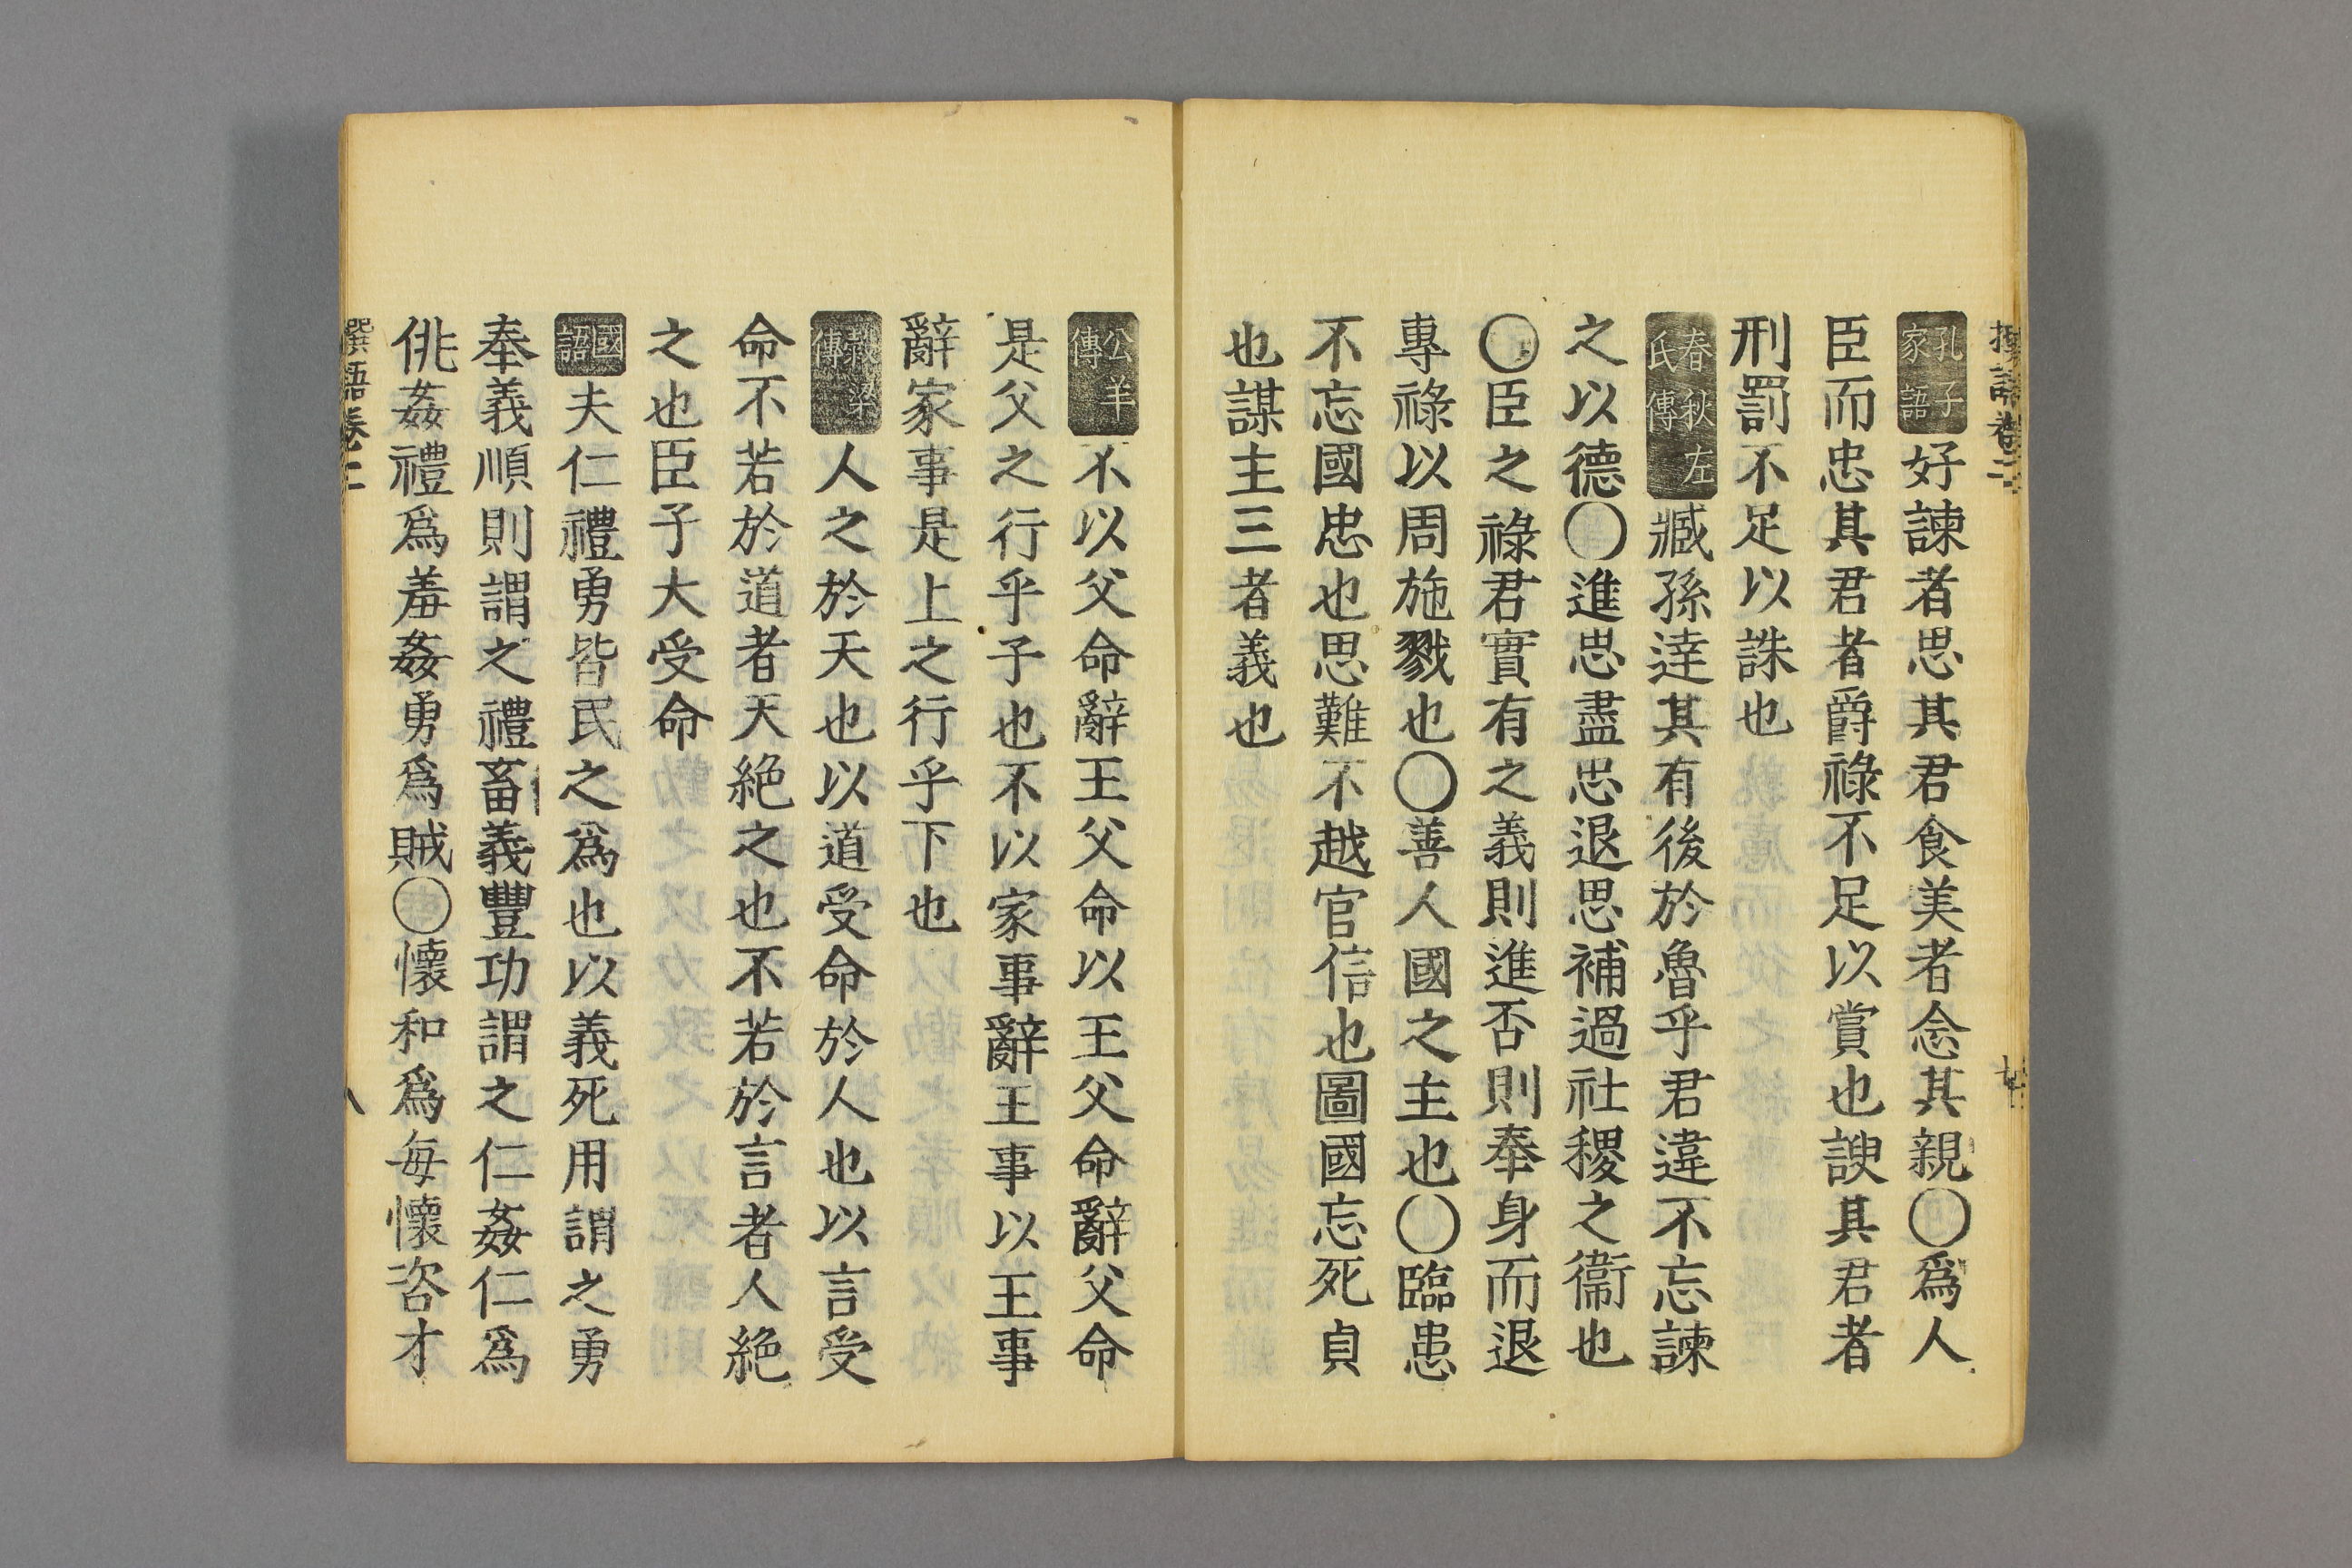 孔子家語好諫者思其君食美者念其親〇爲人
臣而忠其君者爵祿不足以賞也諛其君者
刑罰不足以誅也
春秋左氏傳臧孫達其有後於魯乎君違不忘諫
之以德〇進思盡忠退思補過社稷之衞也
〇臣之祿君實有之義則進否則奉身而退
專祿以周旋戮也〇善人國之主也〇臨患
不忘國忠也思難不越官信也圖國忘死貞
也謀主三者義也
公羊傳不以父命辭王父命以王父命辭父命
是父之行乎子也不以家事辭王事以王事
辭家事是上之行乎下也
穀梁傳人之於天也以道受命於人也以言受
命不若於道者天絶之也不若於言者人絶
之也臣子大受命
國語夫仁禮勇皆民之爲也以義死用謂之勇
奉義順則謂之禮畜義豐功謂之仁姦仁爲
佻姦禮爲羞姦勇爲賊〇懷和爲每懷咨才
撰語卷二